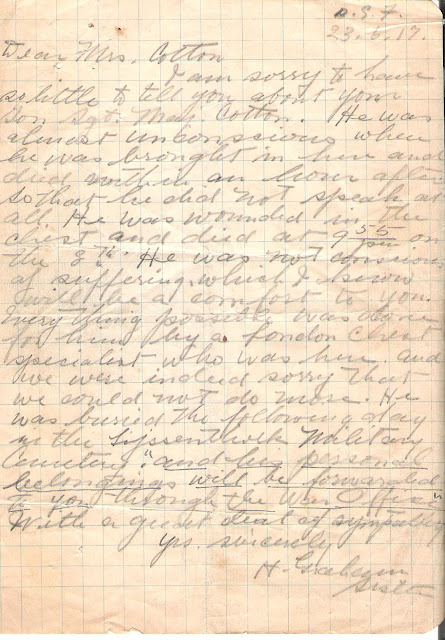 B.E.F.
23.6.17.
Dear Mrs. Cotton
I am sorry to have
so little to tell you about your
son Sgt. Maj. Cotton. He was
almost unconscious when
he was brought in here and
died within an hour after
so that he did not speak at
all He was wounded in the
chest and died at 9 55 pm on
the 8th. He was not conscious
of suffering which I know
will be a comfort to you.
Everything possible was done
for him by a London chest
specialist who was here and
we were indeed sorry that
we could not do more. He
was buried the following day
in the Lyssenthoek Military
Cemetery "and his personal
belongings will be forwarded
to you through the War Office"
With a great deal of sympathy
yrs. sincerely
H. Graham
Sister